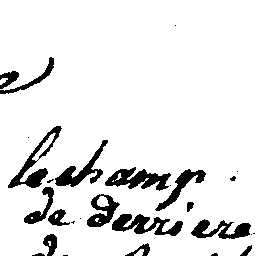 le champ.
de derriere